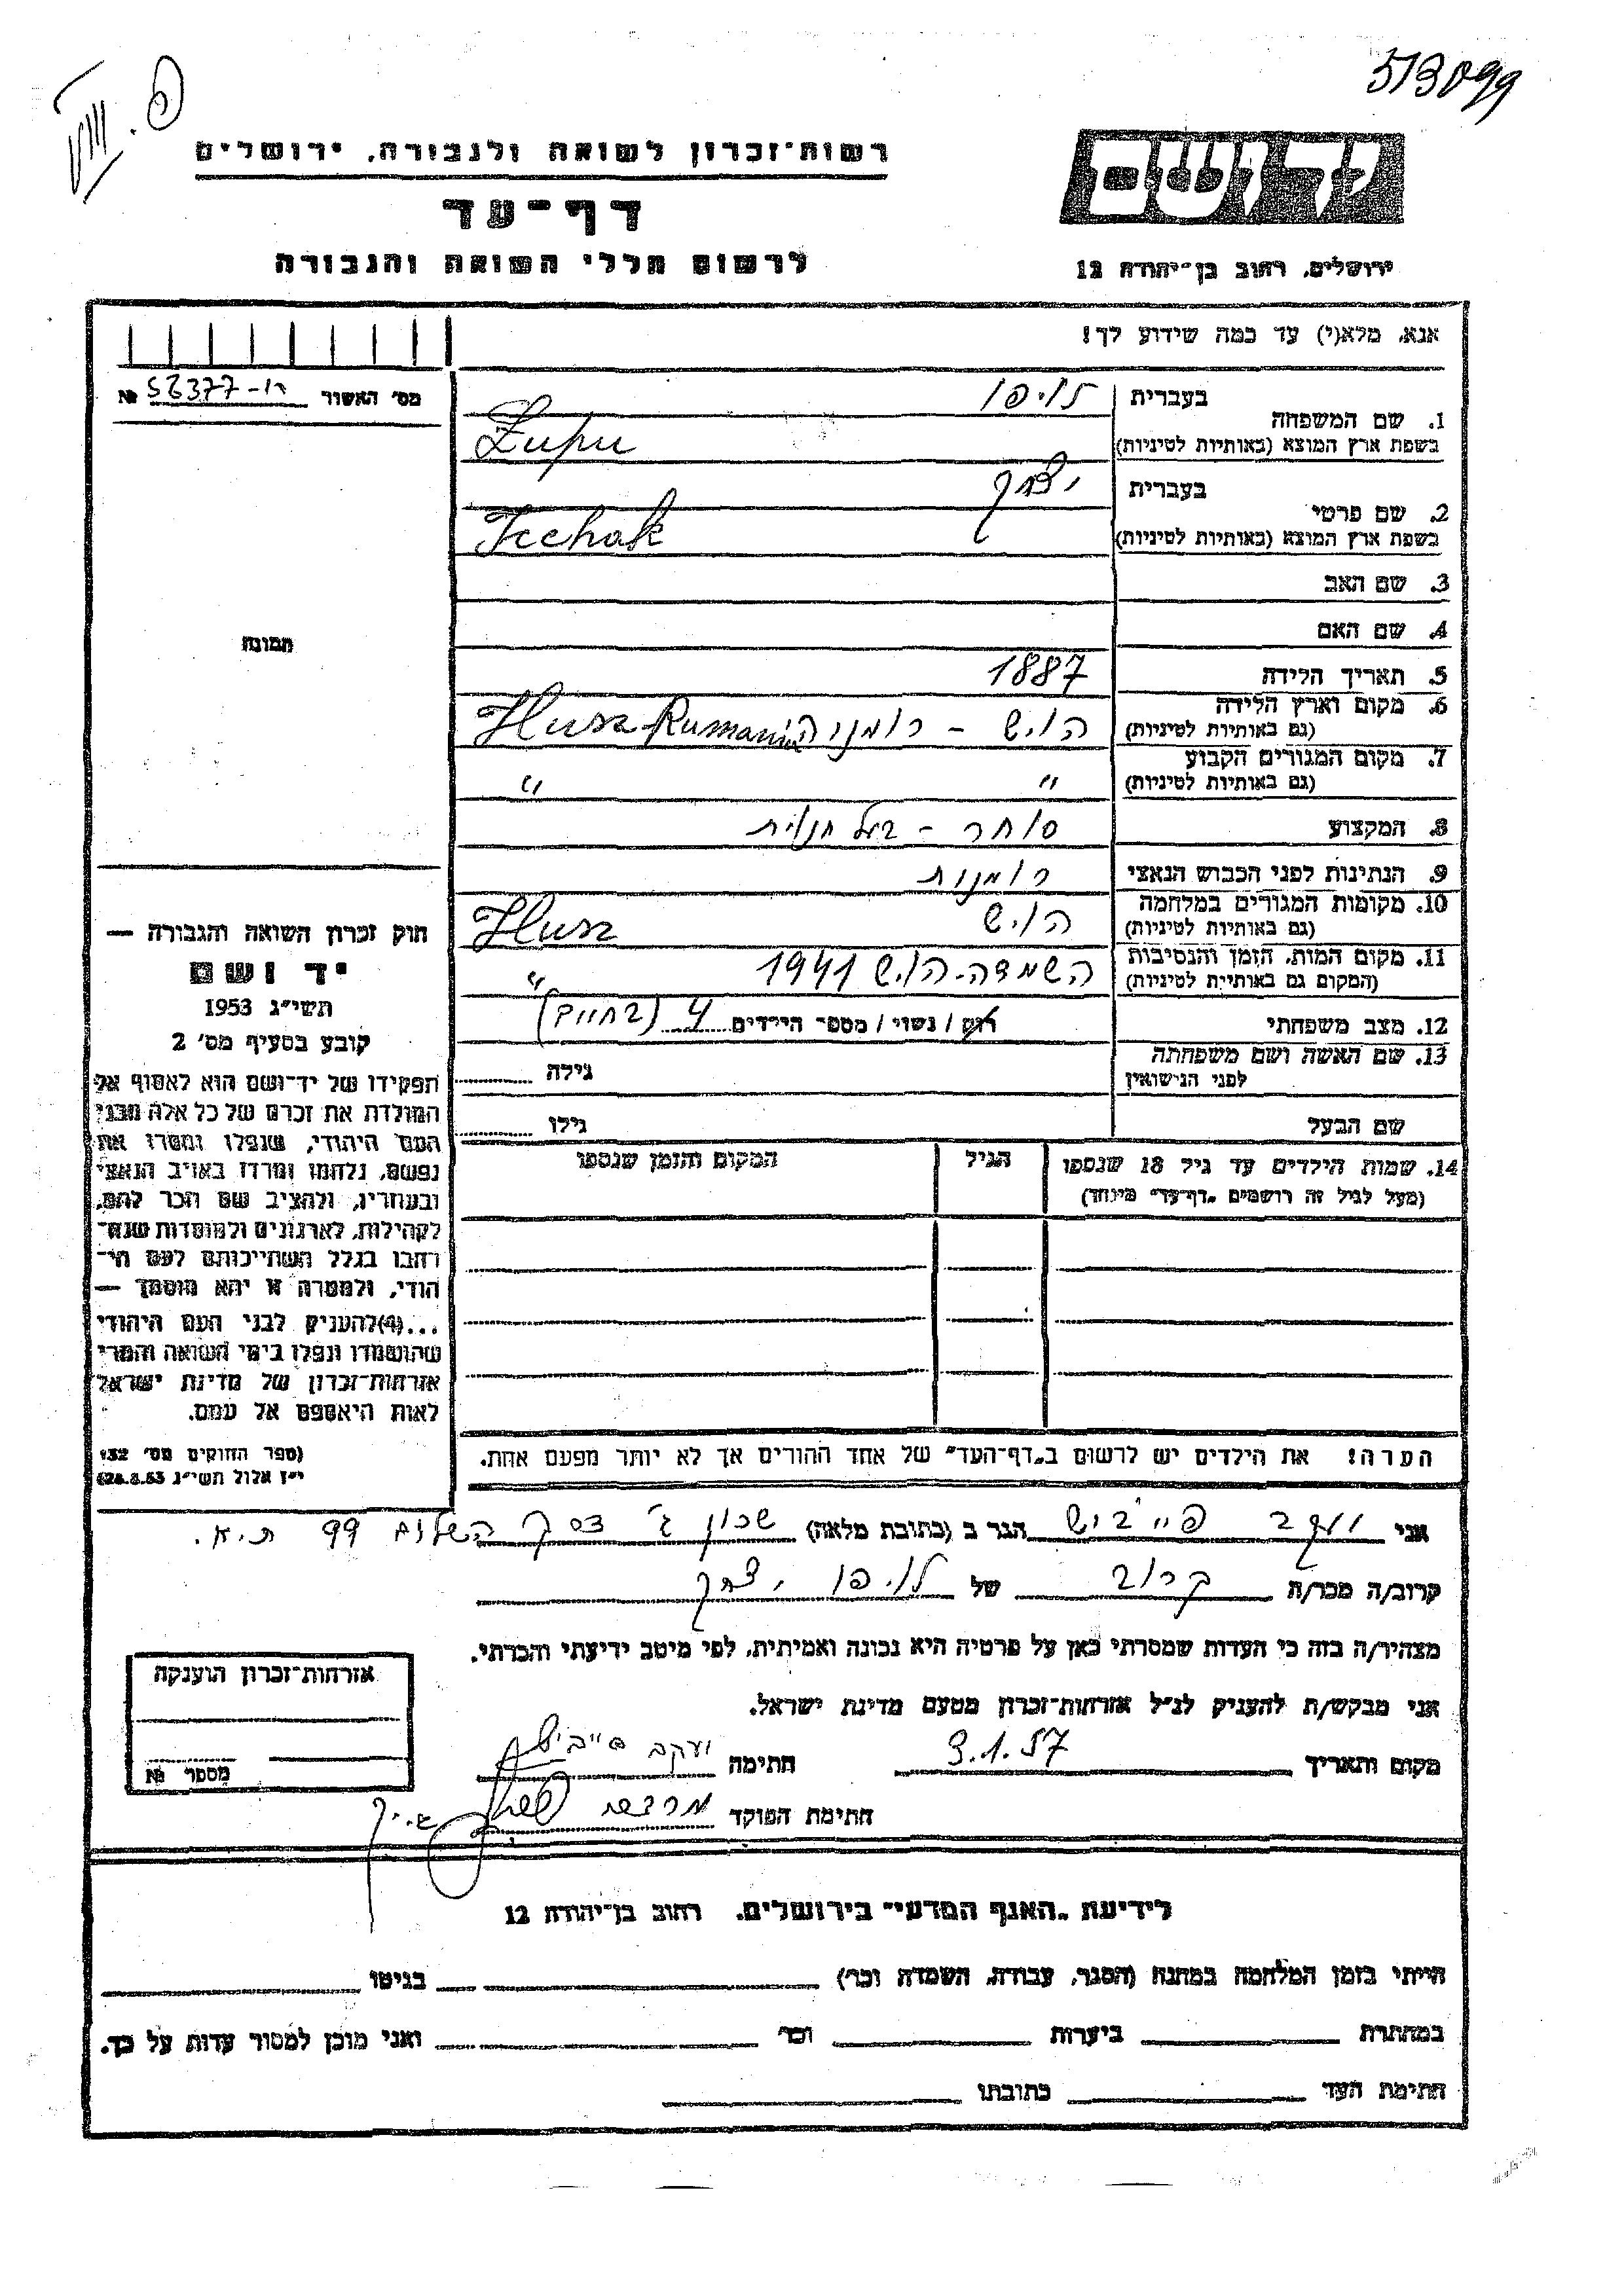 513099
רשות־זכרון לשואה ולגבורה, ירושלים
דף־עד
לרשום חללי השואה והגבורה
יד ושם
ירושלים, רחוב בן־יהודה 12
אנא, מלא(י) עד כמה שידוע לך!
מס' האשור № 56377-רו
1. שם המשפחה
בעברית לויפו
בשפת ארץ המוצא (באותיות לטיניות) Lupu
2. שם פרטי
בעברית יצחק
בשפת ארץ המוצא (באותיות לטיניות) Icchak
3. שם האב
4. שם האם
תמונה
5. תאריך הלידה 1887
6. מקום וארץ הלידה
(גם באותיות לטיניות) הוש - רומניה Husz Rumania
7. מקום המגורים הקבוע
(גם באותיות לטיניות) " "
8. המקצוע סוחר - בעל חנוית
9. הנתינות לפני הכבוש הנאצי רומנית
10. מקומות המגורים במלחמה
(גם באותיות לטיניות) הוש Husz
11. מקום המות, הזמן והנסיבות
(המקום גם באותיות לטיניות) השמדה-הוש 1941 "
12. מצב משפחתי רוק / נשוי / מספר הילדים 4 (בחיים)
13. שם האשה ושם משפחתה
לפני הנישואין גילה
שם הבעל גילו
14. שמות הילדים עד גיל 18 שנספו
(מעל לגיל זה רושמים "דף־עד" מיוחד)
הגיל
המקום והזמן שנספו
חוק זכרון השואה והגבורה —
יד ושם
תשי"ג 1953
קובע בסעיף מס' 2
תפקידו של יד־ושם הוא לאסוף אל
המולדת את זכרם של כל אלה מבני
העם היהודי, שנפלו ומסרו את
נפשם, נלחמו ומרדו באויב הנאצי
ובעוזריו, ולהציב שם וזכר להם,
לקהילות, לארגונים ולמוסדות שנח־
רבו בגלל השתייכותם לעם הי־
הודי, ולמטרה זו יהא מוסמך —
...(4)להעניק לבני העם היהודי
שהושמדו ונפלו בימי השואה והמרי
אזרחות־זכרון של מדינת ישראל
לאות היאספם אל עמם.
(ספר החוקים מס' 132
י"ז אלול תשי"ג 28.8.53)
הערה! את הילדים יש לרשום ב"דף־העד" של אחד ההורים אך לא יותר מפעם אחת.
אני יעקב פייביש הגר ב (כתובת מלאה) שכון ג' דרך השלום 99 ת.א.
קרוב/ה מכר/ה קרוב של לויפו יצחק
מצהיר/ה בזה כי העדות שמסרתי כאן על פרטיה היא נכונה ואמיתית, לפי מיטב ידיעתי והכרתי.
אני מבקש/ת להעניק לנ"ל אזרחות־זכרון מטעם מדינת ישראל.
מקום ותאריך 3.1.57 חתימה יעקב פייביש
חתימת הפוקד
אזרחות־זכרון הוענקה
מספר №
לידיעת "האגף המדעי" בירושלים, רחוב בן־יהודה 12
הייתי בזמן המלחמה במחנה (הסגר, עבודה, השמדה וכו') בגיטו
במחתרת ביערות וכו' ואני מוכן למסור עדות על כך.
חתימת העד כתובתו